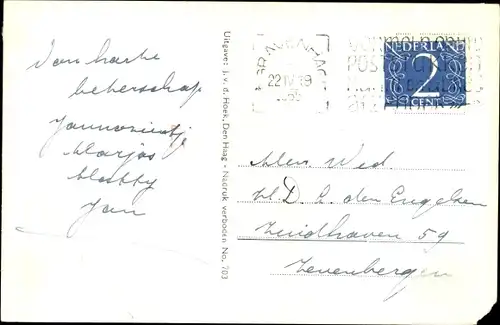 Van harte
beterschap
Jannozientje
Marjos
Jan
Uitgave: J. v. d. Hoek, Den Haag - Nadruk verboden No. 703
'S GRAVENHAGE
22 IV 19
NEDERLAND
2
CENT
Mev. Wed.
d. den Engelsen
Zuidhaven 59
Zevenbergen